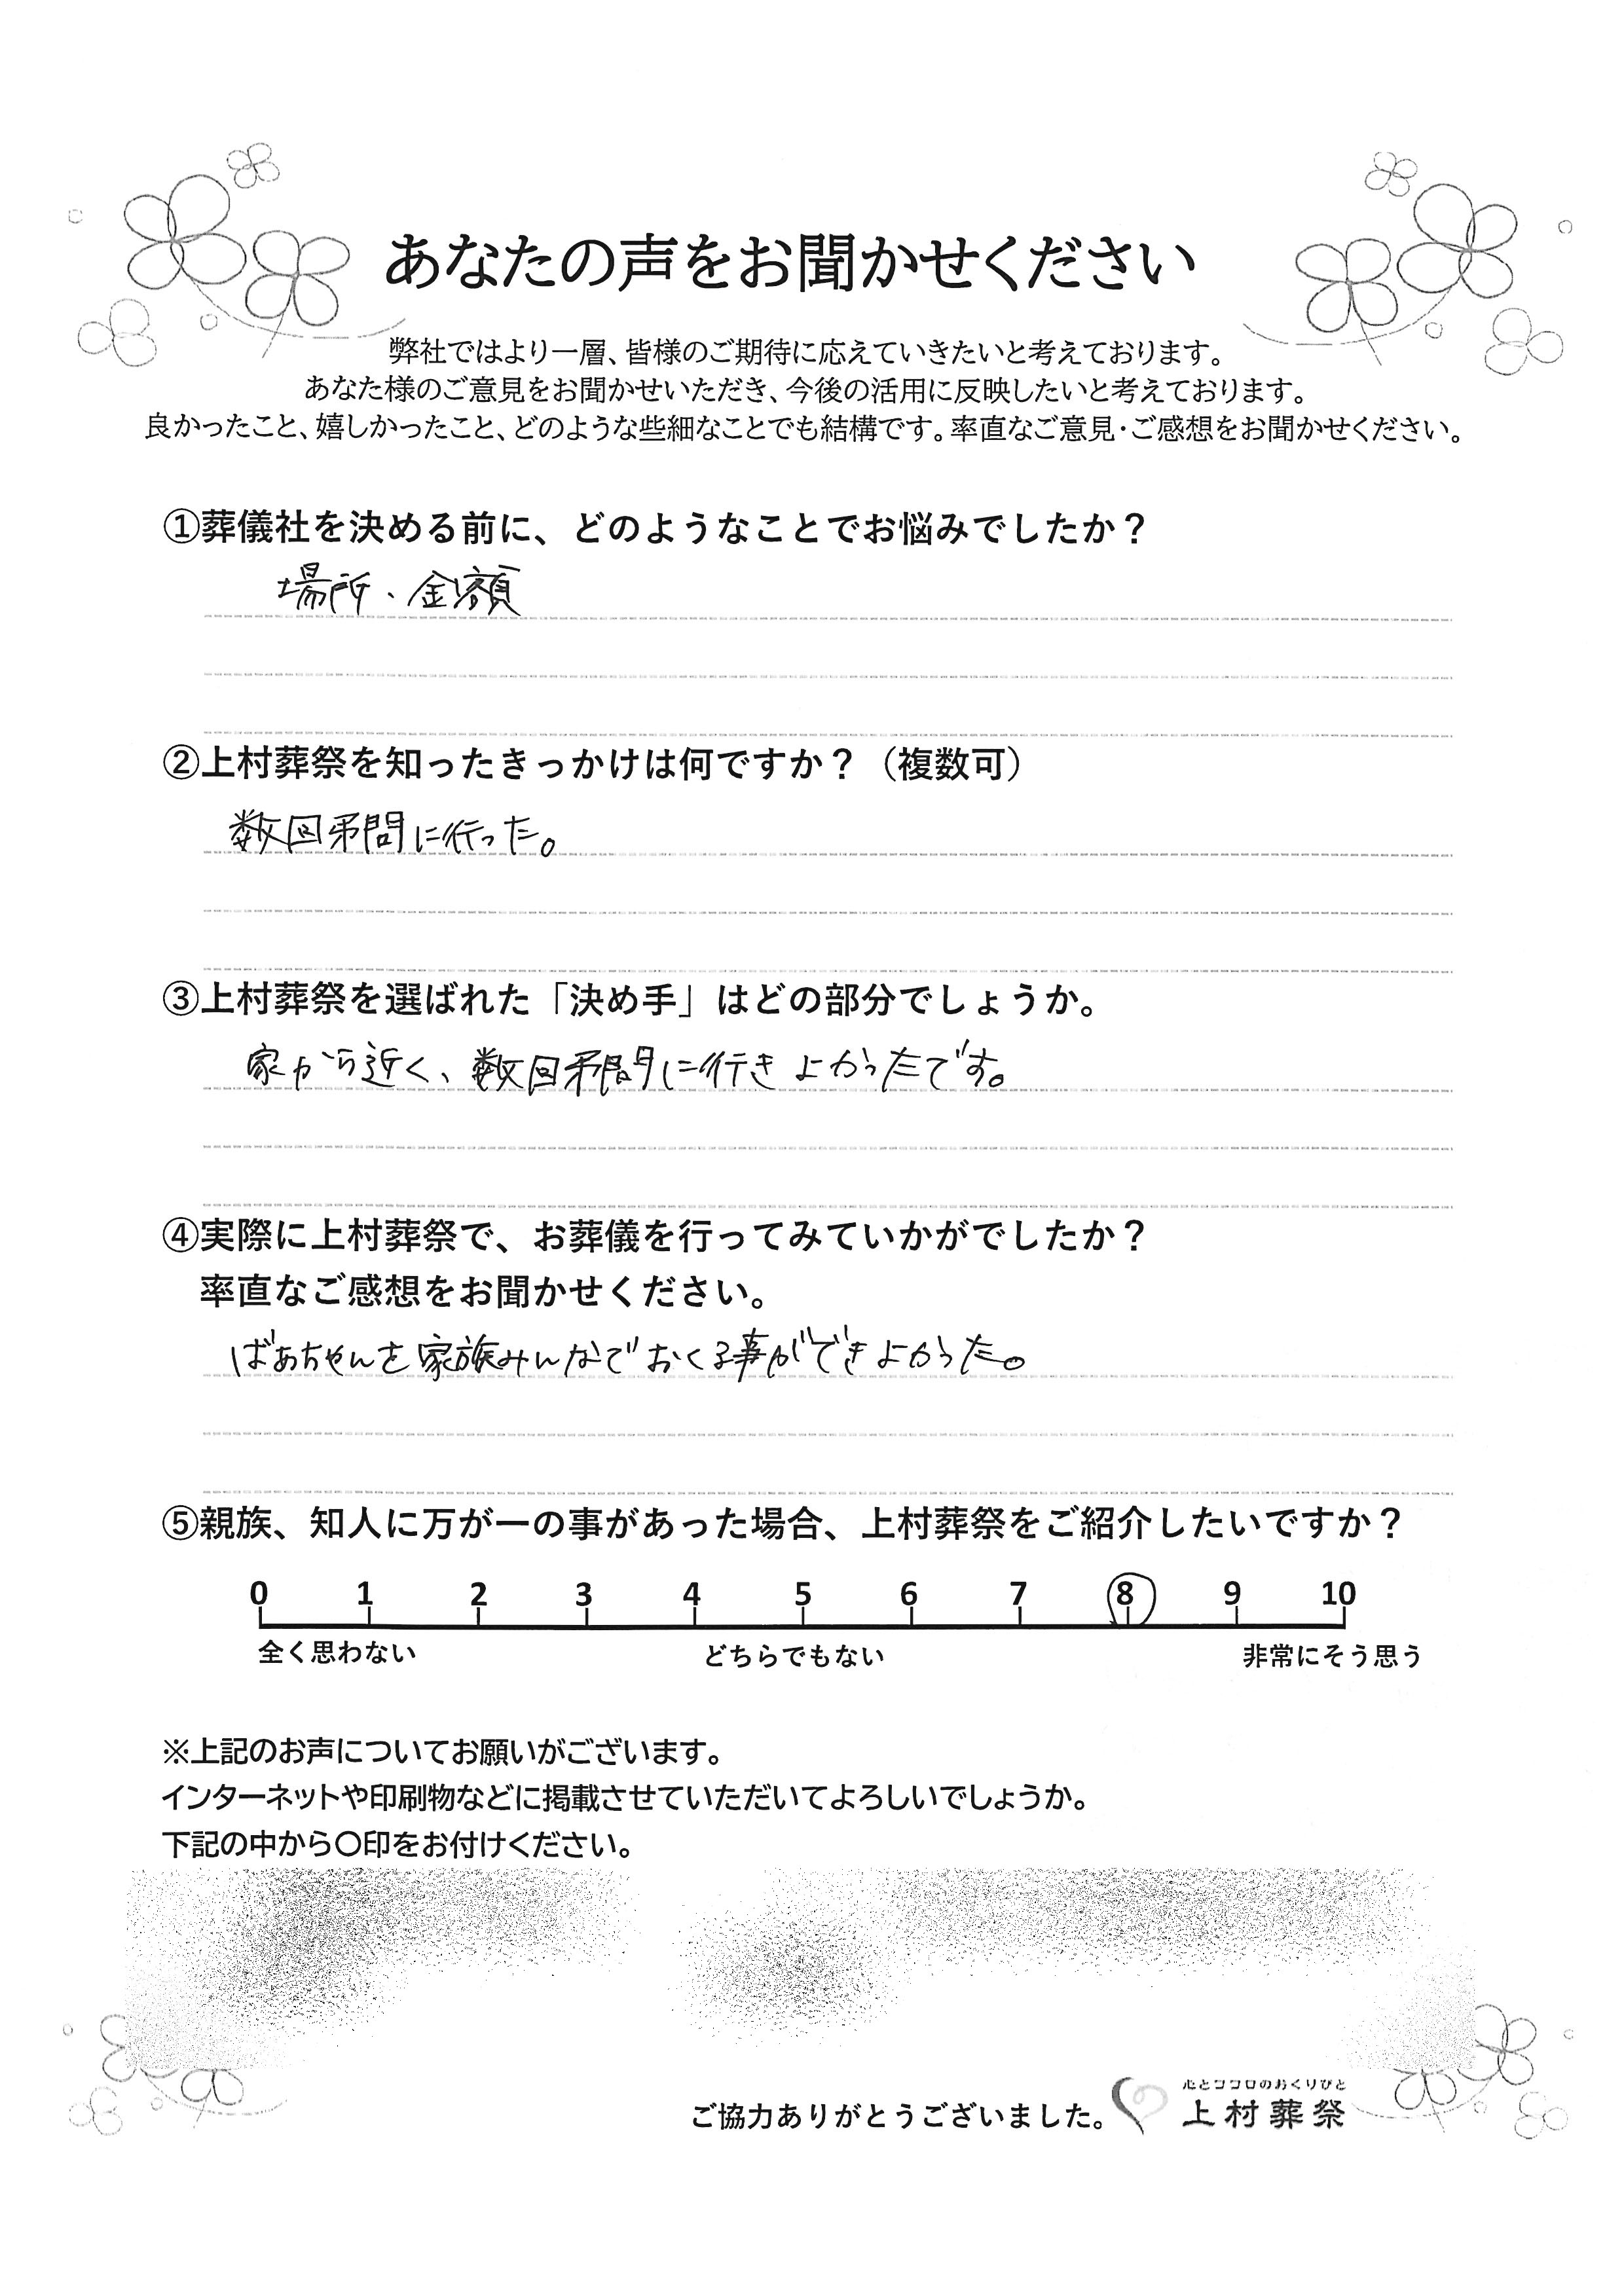 あなたの声をお聞かせください
弊社ではより一層、皆様のご期待に応えていきたいと考えております。
あなた様のご意見をお聞かせいただき、今後の活用に反映したいと考えております。
良かったこと、嬉しかったこと、どのような些細なことでも結構です。率直なご意見・ご感想をお聞かせください。
①葬儀社を決める前に、どのようなことでお悩みでしたか？
場所・金額
②上村葬祭を知ったきっかけは何ですか？（複数可）
数回弔問に行った。
③上村葬祭を選ばれた「決め手」はどの部分でしょうか。
家から近く、数回弔問に行きよかったです。
④実際に上村葬祭で、お葬儀を行ってみていかがでしたか？
率直なご感想をお聞かせください。
ばあちゃんを家族みんなでおくる事ができよかった。
⑤親族、知人に万が一の事があった場合、上村葬祭をご紹介したいですか？
0 1 2 3 4 5 6 7 8 9 10
全く思わない どちらでもない 非常にそう思う
※上記のお声についてお願いがございます。
インターネットや印刷物などに掲載させていただいてよろしいでしょうか。
下記の中から〇印をお付けください。
心とココロのおくりびと
ご協力ありがとうございました。 上村葬祭